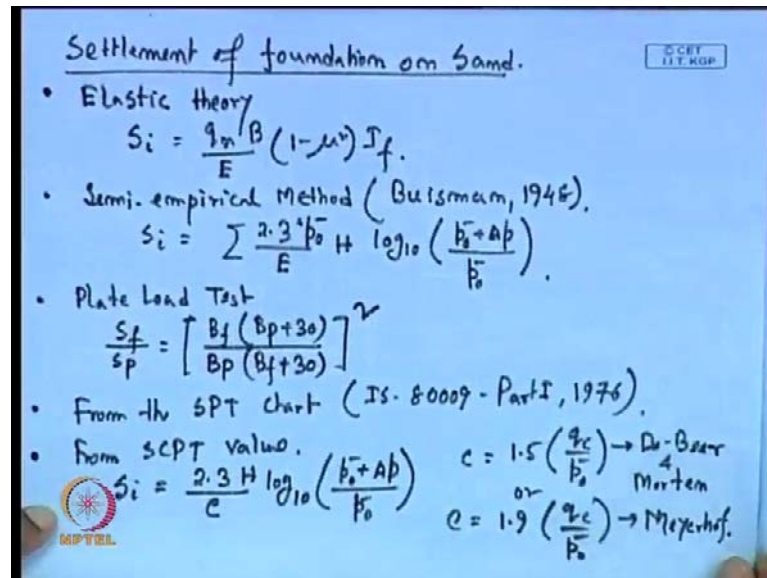 Settlement of foundation on Sand.
© CET
I.I.T. KGP
• Elastic theory
Si = qn B / E (1-μ²) If.
• Semi-empirical Method (Buisman, 1948).
Si = Σ 2.3 p̄o / E H log10 (p̄o + Δp / p̄o).
• Plate Load Test
Sf / Sp = [Bf (Bp+30) / Bp (Bf+30)]²
• From the SPT chart (IS. 80009 - Part I, 1976).
• From SCPT value.
Si = 2.3 H / C log10 (p̄o + Δp / p̄o)
C = 1.5 (qc / p̄o) → De-Beer
&
Marten
or
C = 1.9 (qc / p̄o) → Meyerhof.
NPTEL